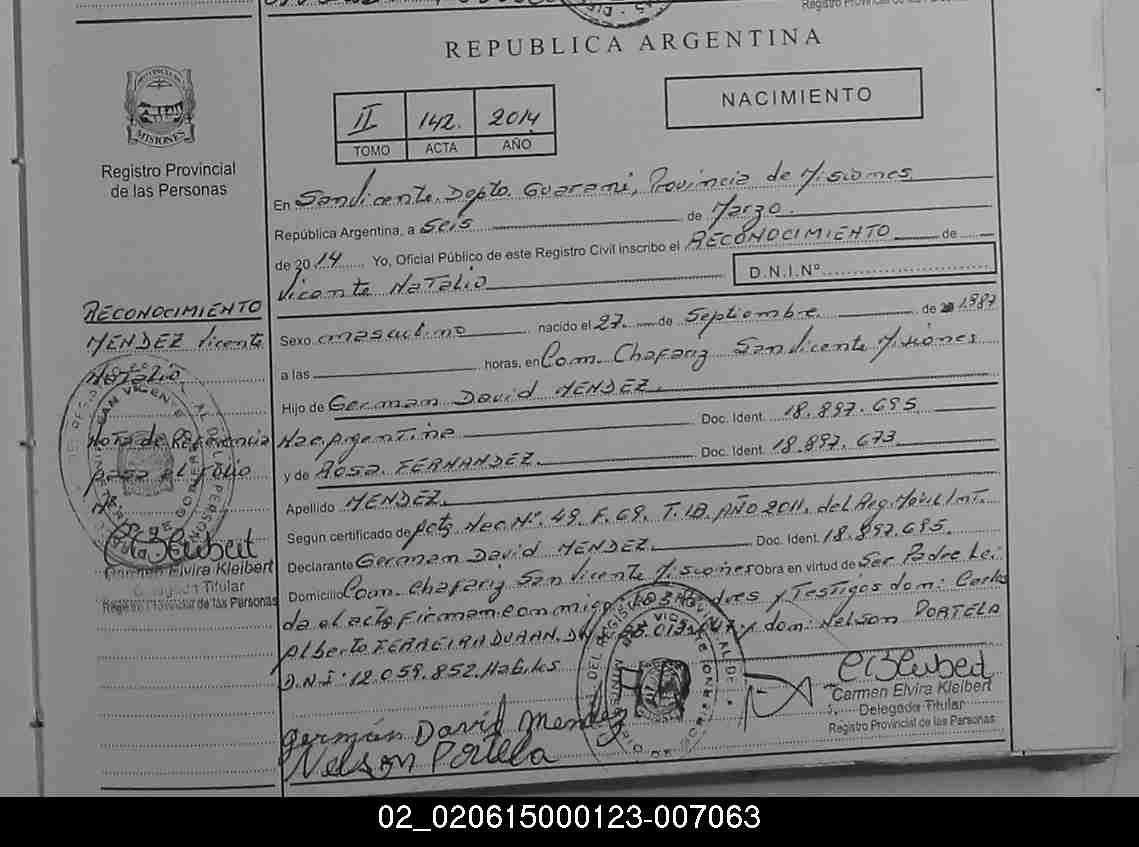 REPUBLICA ARGENTINA
PROVINCIA DE
MISIONES
Registro Provincial
de las Personas
II 142. 2014
TOMO ACTA AÑO
NACIMIENTO
En San Vicente, Depto. Guarani, Provincia de Misiones,
República Argentina, a seis de Marzo.
de 2014 Yo, Oficial Público de este Registro Civil inscribo el RECONOCIMIENTO de
Vicente Natalio D.N.I.Nº
Sexo masculino nacido el 27. de Septiembre. de 1987
a las horas, en Com. Chafariz San Vicente Misiones
Hijo de German David MENDEZ.
Nac. Argentina Doc. Ident. 18.897.695
y de Rosa FERNANDEZ. Doc. Ident. 18.897.673
Apellido MENDEZ.
Según certificado de Acta Nac. Nº. 49. F. 69. T. 1B. AÑO 2011. del Reg. Movil Int.
Declarante German David MENDEZ. Doc. Ident. 18.897.695.
Domicilio Com. Chafariz San Vicente Misiones Obra en virtud de Ser Padre Lei
da el acta Firman conmigo los Padres y Testigos don: Carlos
Alberto FERREIRA DURAN. y don: Nelson PORTELA
D.N.I: 12.059.852. Habiles
RECONOCIMIENTO
MENDEZ Vicente
Natalio
Nota de Referencia
pasa al folio
Carmen Elvira Kleibert
Delegada Titular
Registro Provincial de las Personas
germán David Mendez
Nelson Portela
Carmen Elvira Kleibert
Delegada Titular
Registro Provincial de las Personas
02_020615000123-007063